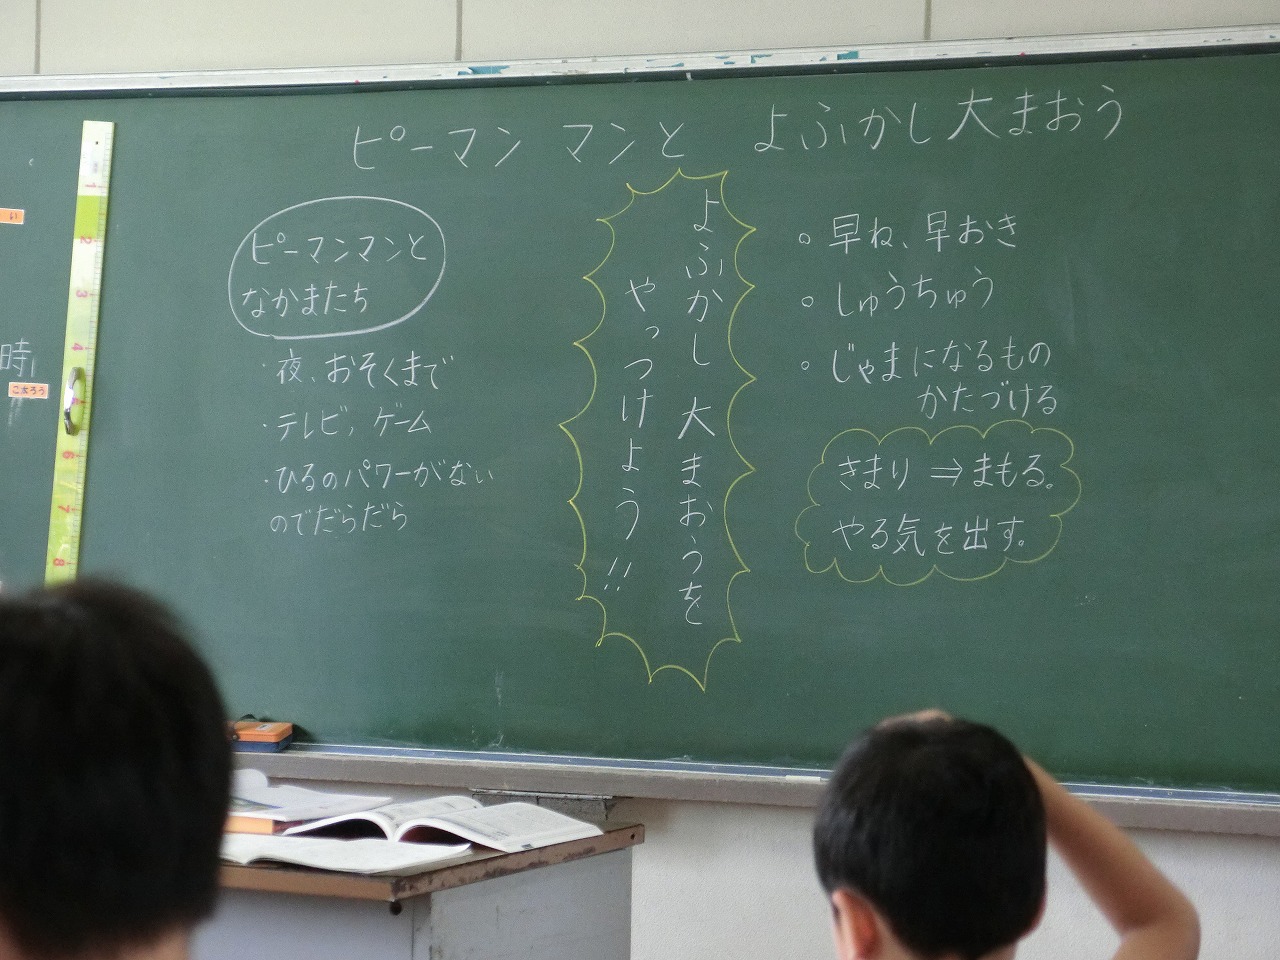 ピーマン マンと よふかし大まおう
ピーマンマンと
なかまたち
・夜、おそくまで
・テレビ, ゲーム
・ひるのパワーがない
のでだらだら
よふかし大まおうを
やっつけよう!!
○ 早ね、早おき
○ しゅうちゅう
○ じゃまになるもの
かたづける
きまり ⇒ まもる。
やる気を出す。
時
1
2
3
4
6
7
8